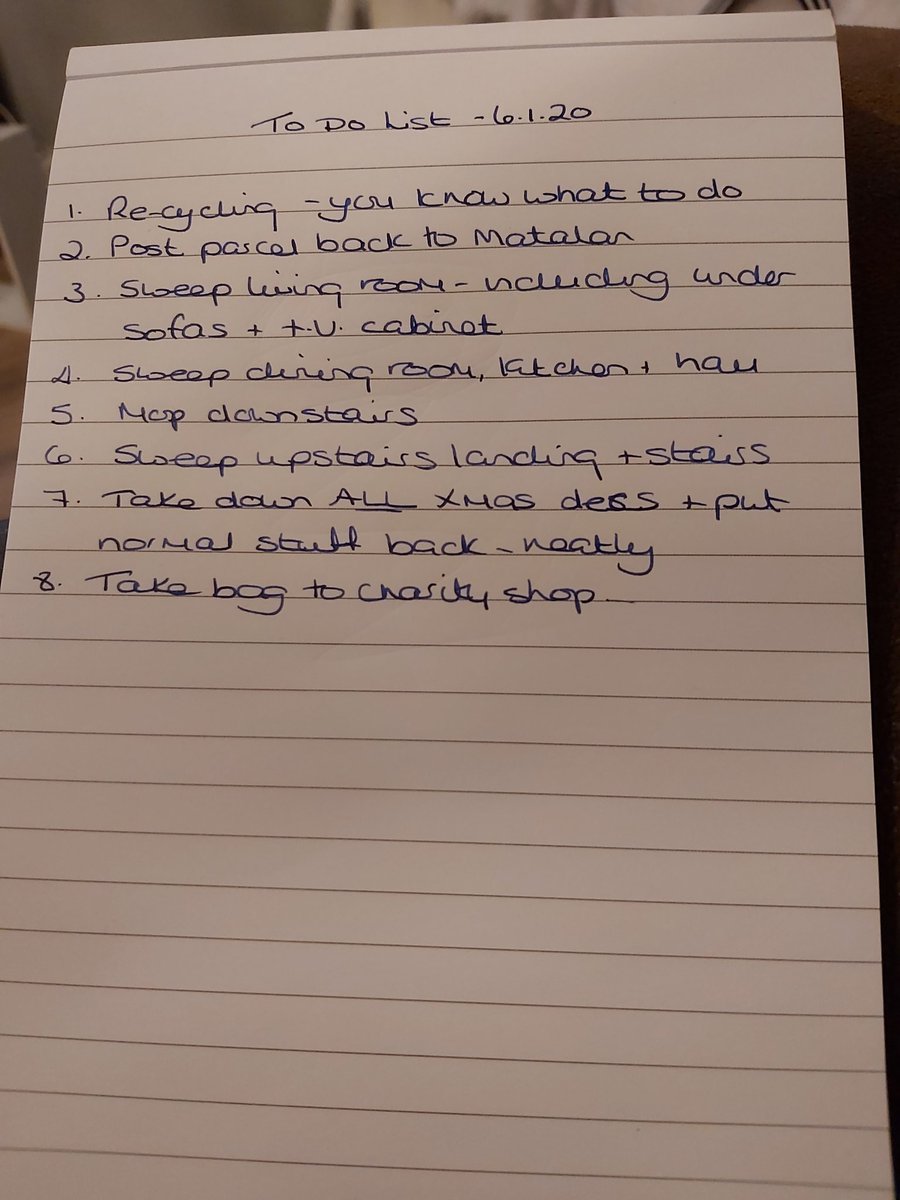 To Do List - 6.1.20
1. Re-cycling - you know what to do
2. Post parcel back to Matalan
3. Sweep living room - including under
sofas + T.V. cabinet
4. Sweep dining room, kitchen + hall
5. Mop downstairs
6. Sweep upstairs landing + stairs
7. Take down ALL XMAS decs + put
normal stuff back - neatly
8. Take bag to charity shop